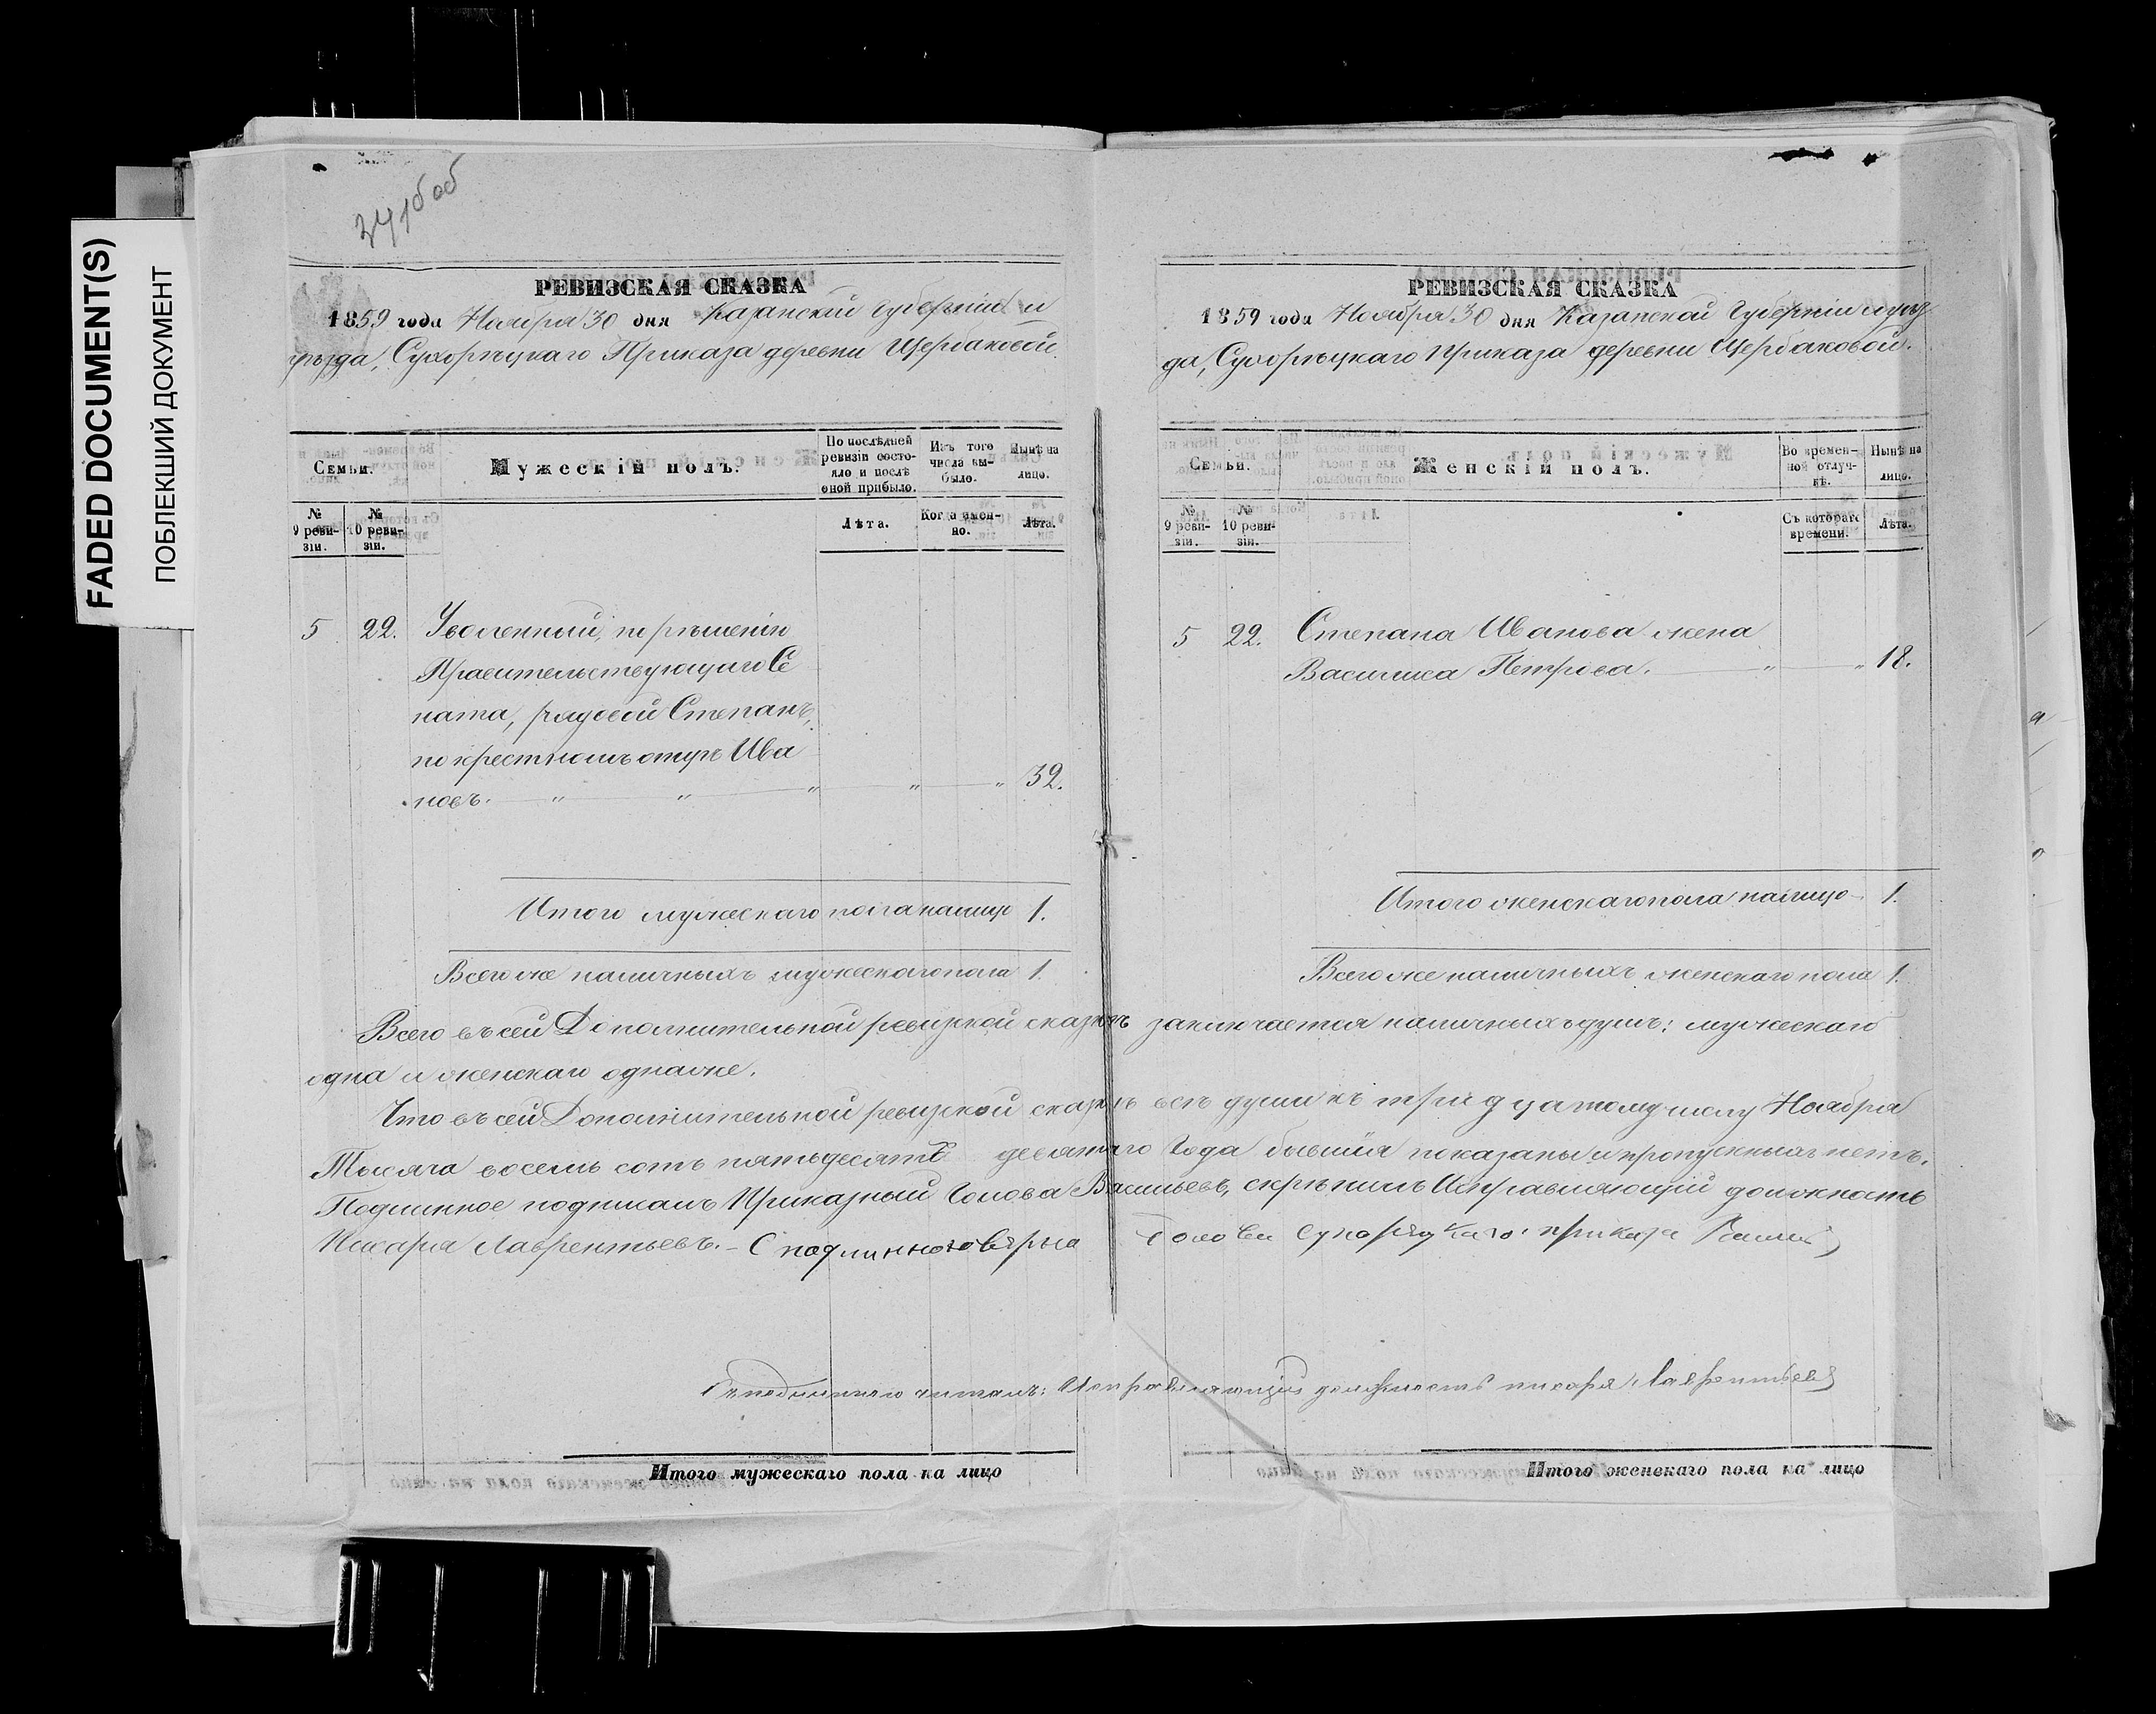 FADED DOCUMENT(S)
ПОБЛЕКШИЙ ДОКУМЕНТ
об
РЕВИЗСКАЯ СКАЗКА
1859 года Ноября 30 дня Казанской Губерніи и
уѣзда, Сухорѣцкаго Приказа деревни Щербаковой.
Семьи.
Мужескій полъ.
По послѣдней ревизіи состояло и послѣ оной прибыло.
Изъ того числа выбыло.
Нынѣ на лицо.
№ 9 ревизіи.
№ 10 ревизіи.
Лѣта.
Когда именно.
Лѣта.
5 22. Уволенный, по рѣшенію
Правительствующаго Се
ната, рядовой Степанъ,
по крестномъ отцѣ Ива
новъ. 32.
Итого мужескаго пола налицо 1.
Всего же наличныхъ мужескаго пола 1.
РЕВИЗСКАЯ СКАЗКА
1859 года Ноября 30 дня Казанской Губерніи и уѣз
да, Сухорѣцкаго Приказа деревни Щербаковой.
Семьи.
Женскій полъ.
Во временной отлучкѣ.
Нынѣ на лицо.
№ 9 ревизіи.
№ 10 ревизіи.
Съ котораго времени.
Лѣта.
5 22. Степана Иванова жена
Василиса Петрова. 18.
Итого женскаго пола налицо 1.
Всего же наличныхъ женскаго пола 1.
Всего въ сей Дополнительной ревизской сказкѣ заключается наличныхъ душъ: мужескаго
одна и женскаго одна же.
Что въ сей Дополнительной ревизской сказкѣ всѣ души къ тридцатому числу Ноября
Тысяча восемь сотъ пятьдесятъ девятаго Года бывшія показаны и пропускныхъ нетъ.
Подлинное подписалъ Приказный Голова Васильевъ, скрѣпилъ Исправляющій должность
Писаря Лаврентьевъ. – С подлинного вѣрно Голова Сухорецкаго приказа
Съ подлиннаго читалъ: Исправляющій должность писаря Лаврентьевъ
Итого мужескаго пола на лицо
Итого женскаго пола на лицо